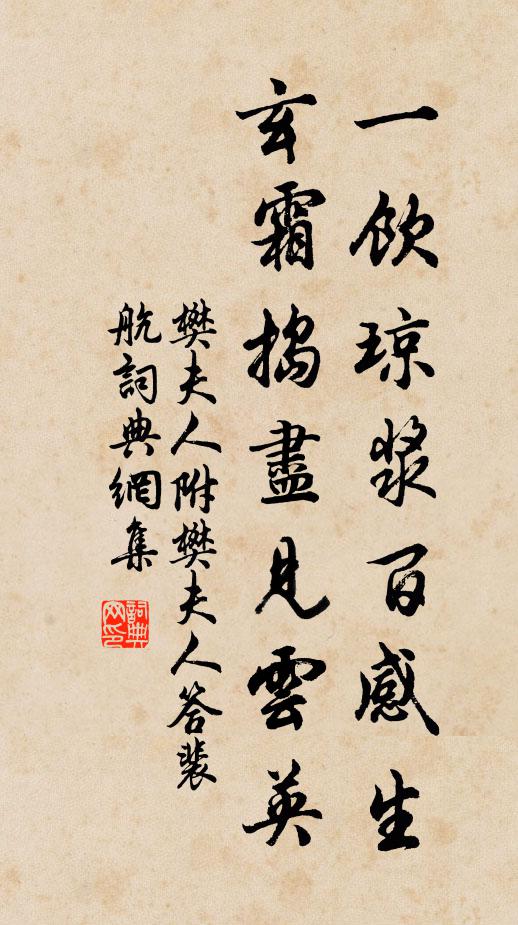 一飲琼漿百感生
玄霜搗盡見雲英
樊夫人附樊夫人答裴
航詞典網集
詞典
网印